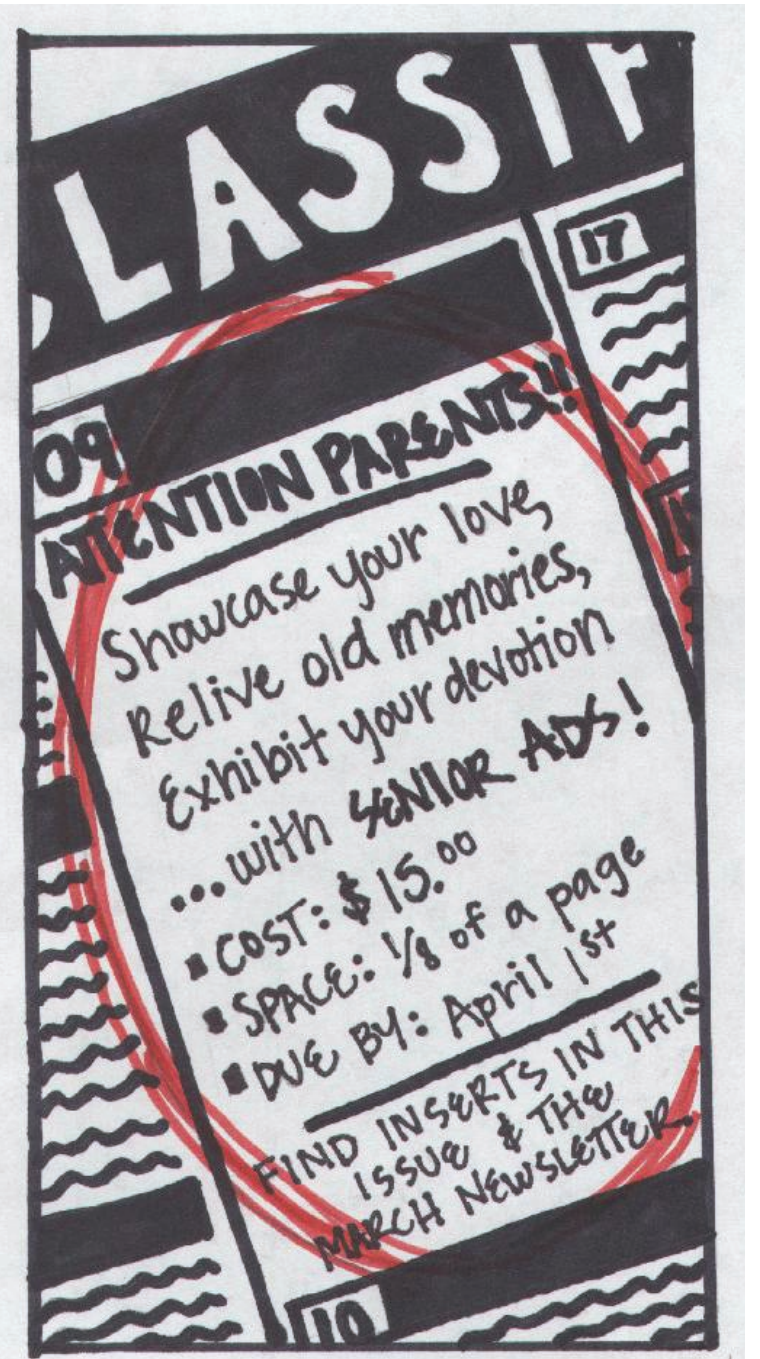 CLASSIF
17
09
ATTENTION PARENTS!!
Showcase your love,
Relive old memories,
Exhibit your devotion
...with SENIOR ADS!
▪ COST: $15.00
▪ SPACE: 1/8 of a page
▪ DUE BY: April 1st
FIND INSERTS IN THIS
ISSUE & THE
MARCH NEWSLETTER.
10